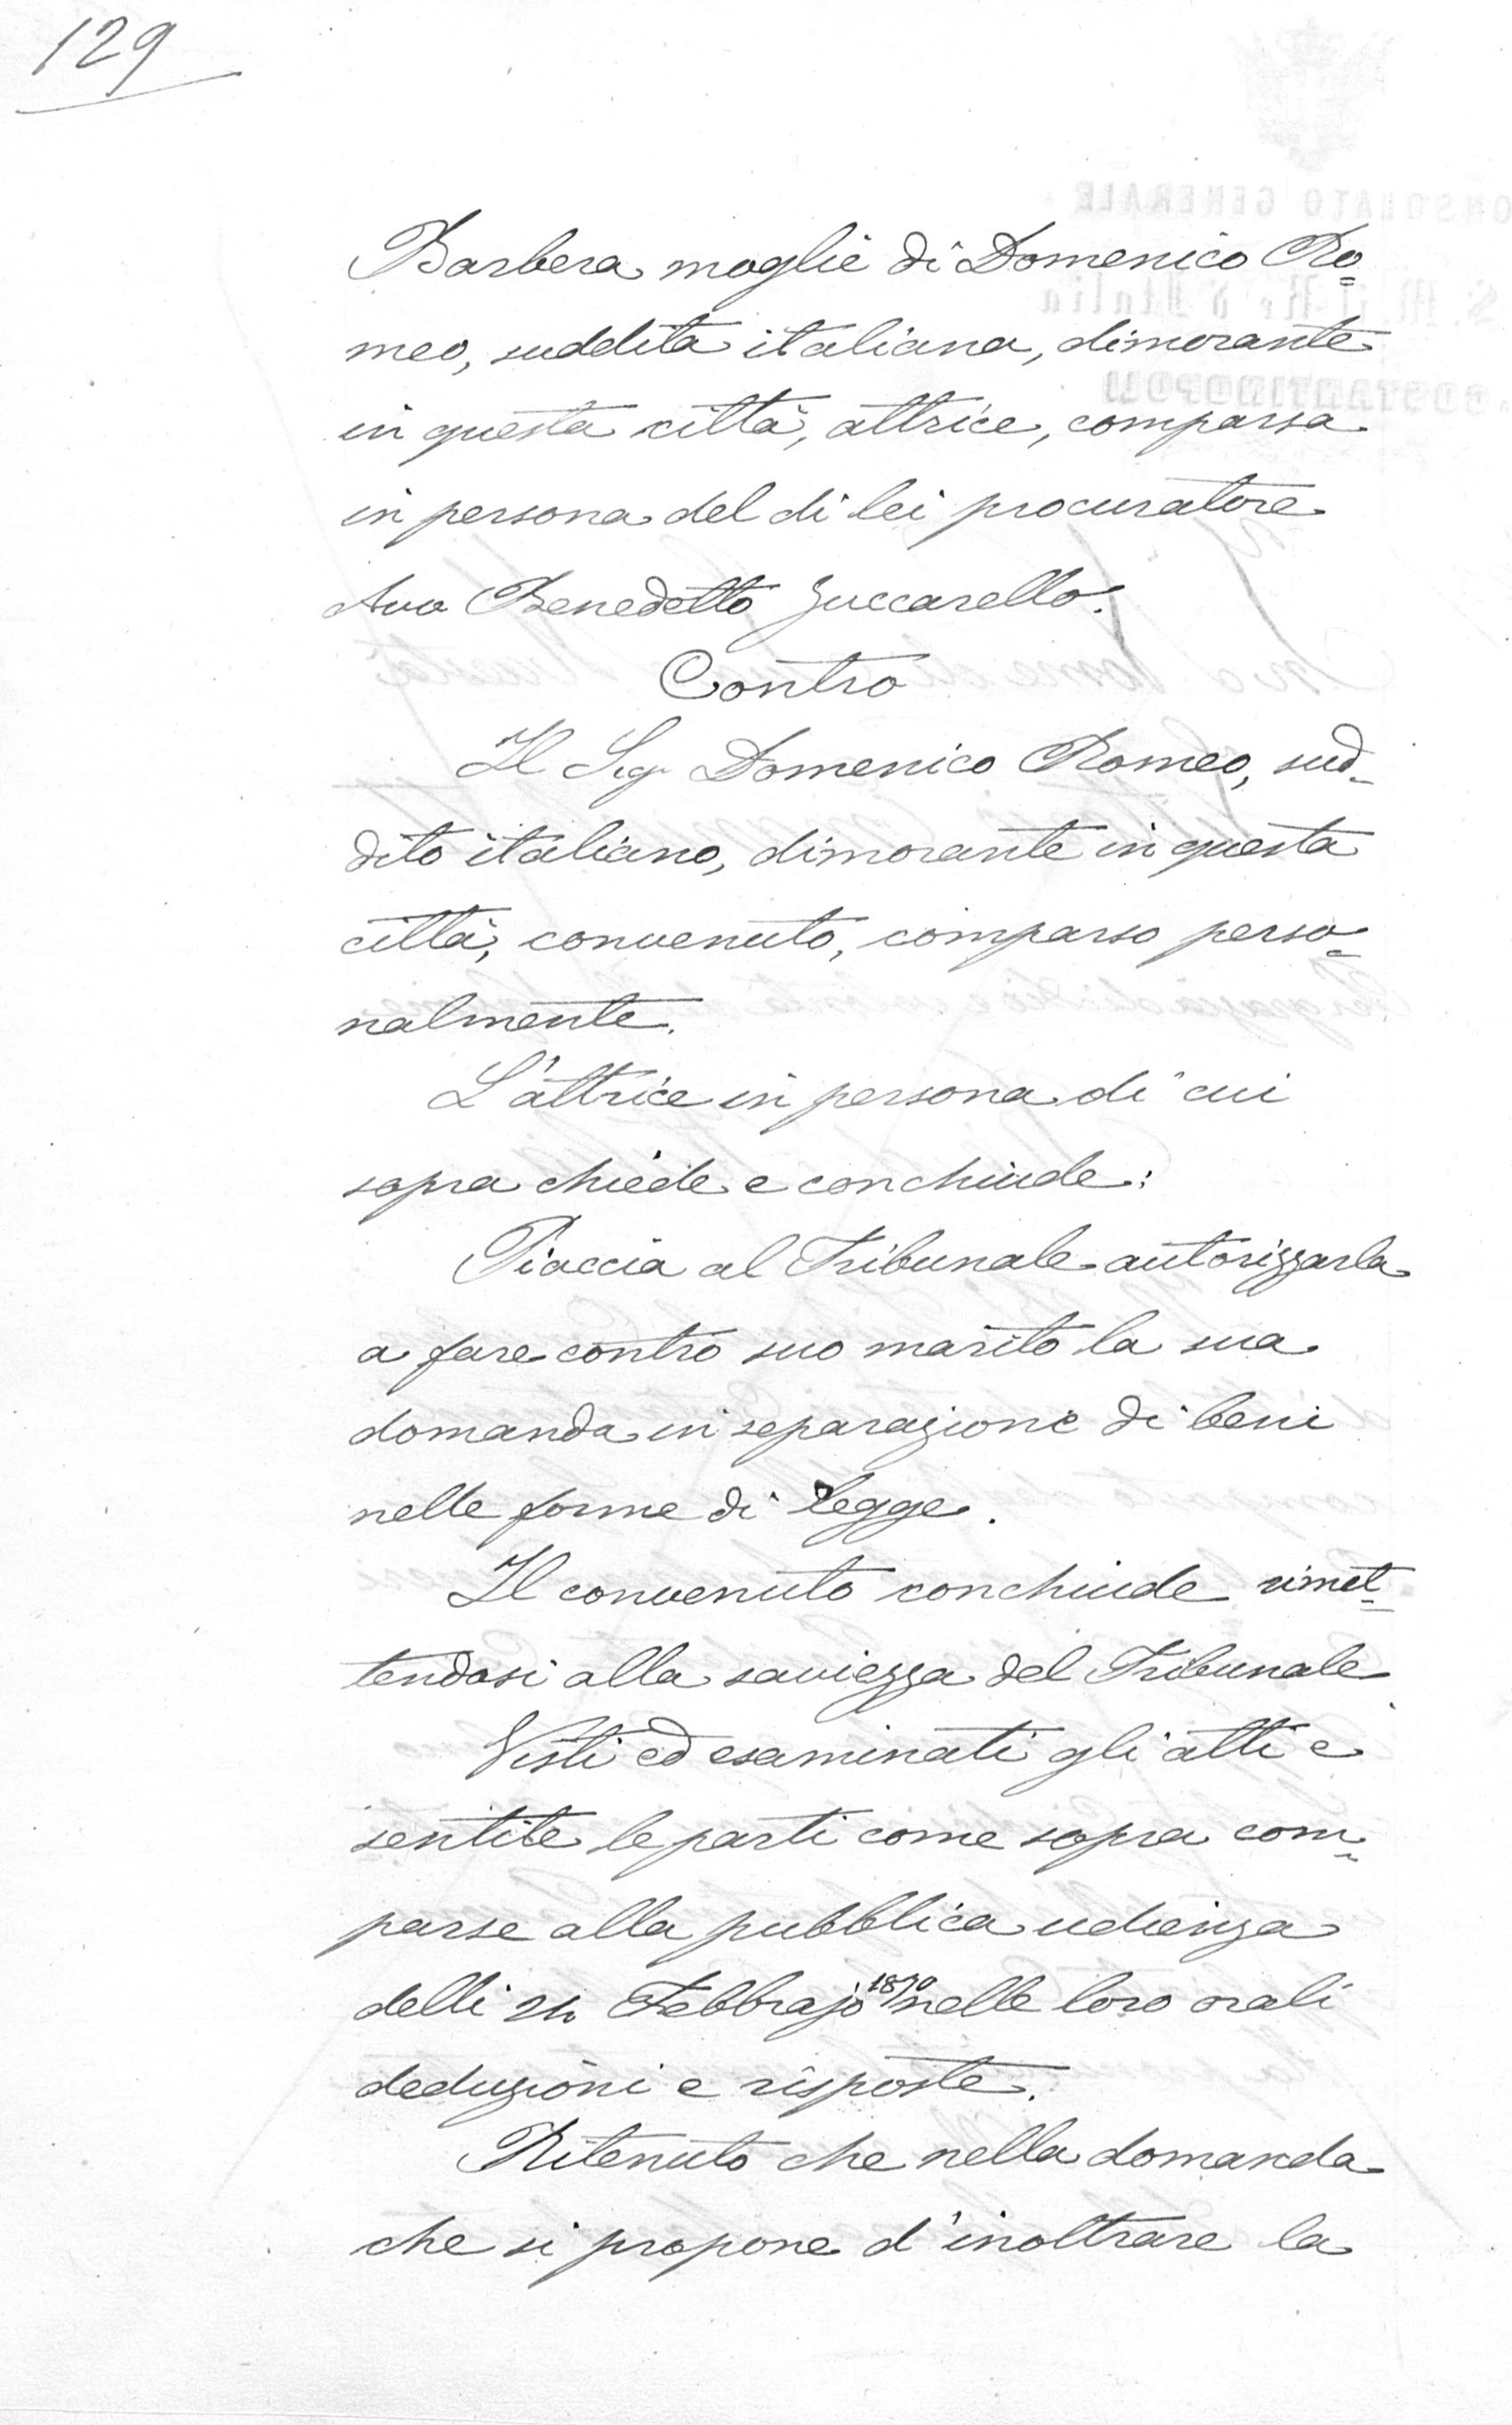 129
Barbera moglie di Domenico Ro=
meo, suddita italiana, dimorante
in questa città, attrice, comparsa
in persona del di lei procuratore
Avo Benedetto Zuccarello.
Contro
Il Sig. Domenico Romeo, sud-
dito italiano, dimorante in questa
città, convenuto, comparso perso=
nalmente.
L'attrice in persona di cui
sopra chiede e conchiude:
Piaccia al Tribunale autorizzarla
a fare contro suo marito la sua
domanda in separazione di beni
nelle forme di legge.
Il convenuto conchiude rimet=
tendosi alla saviezza del Tribunale
Visti ed esaminati gli atti e
sentite le parti come sopra com=
parse alla pubblica udienza
delli 24 Febbrajo 1870 nelle loro orali
deduzioni e risposte.
Ritenuto che nella domanda
che si propone d'inoltrare la